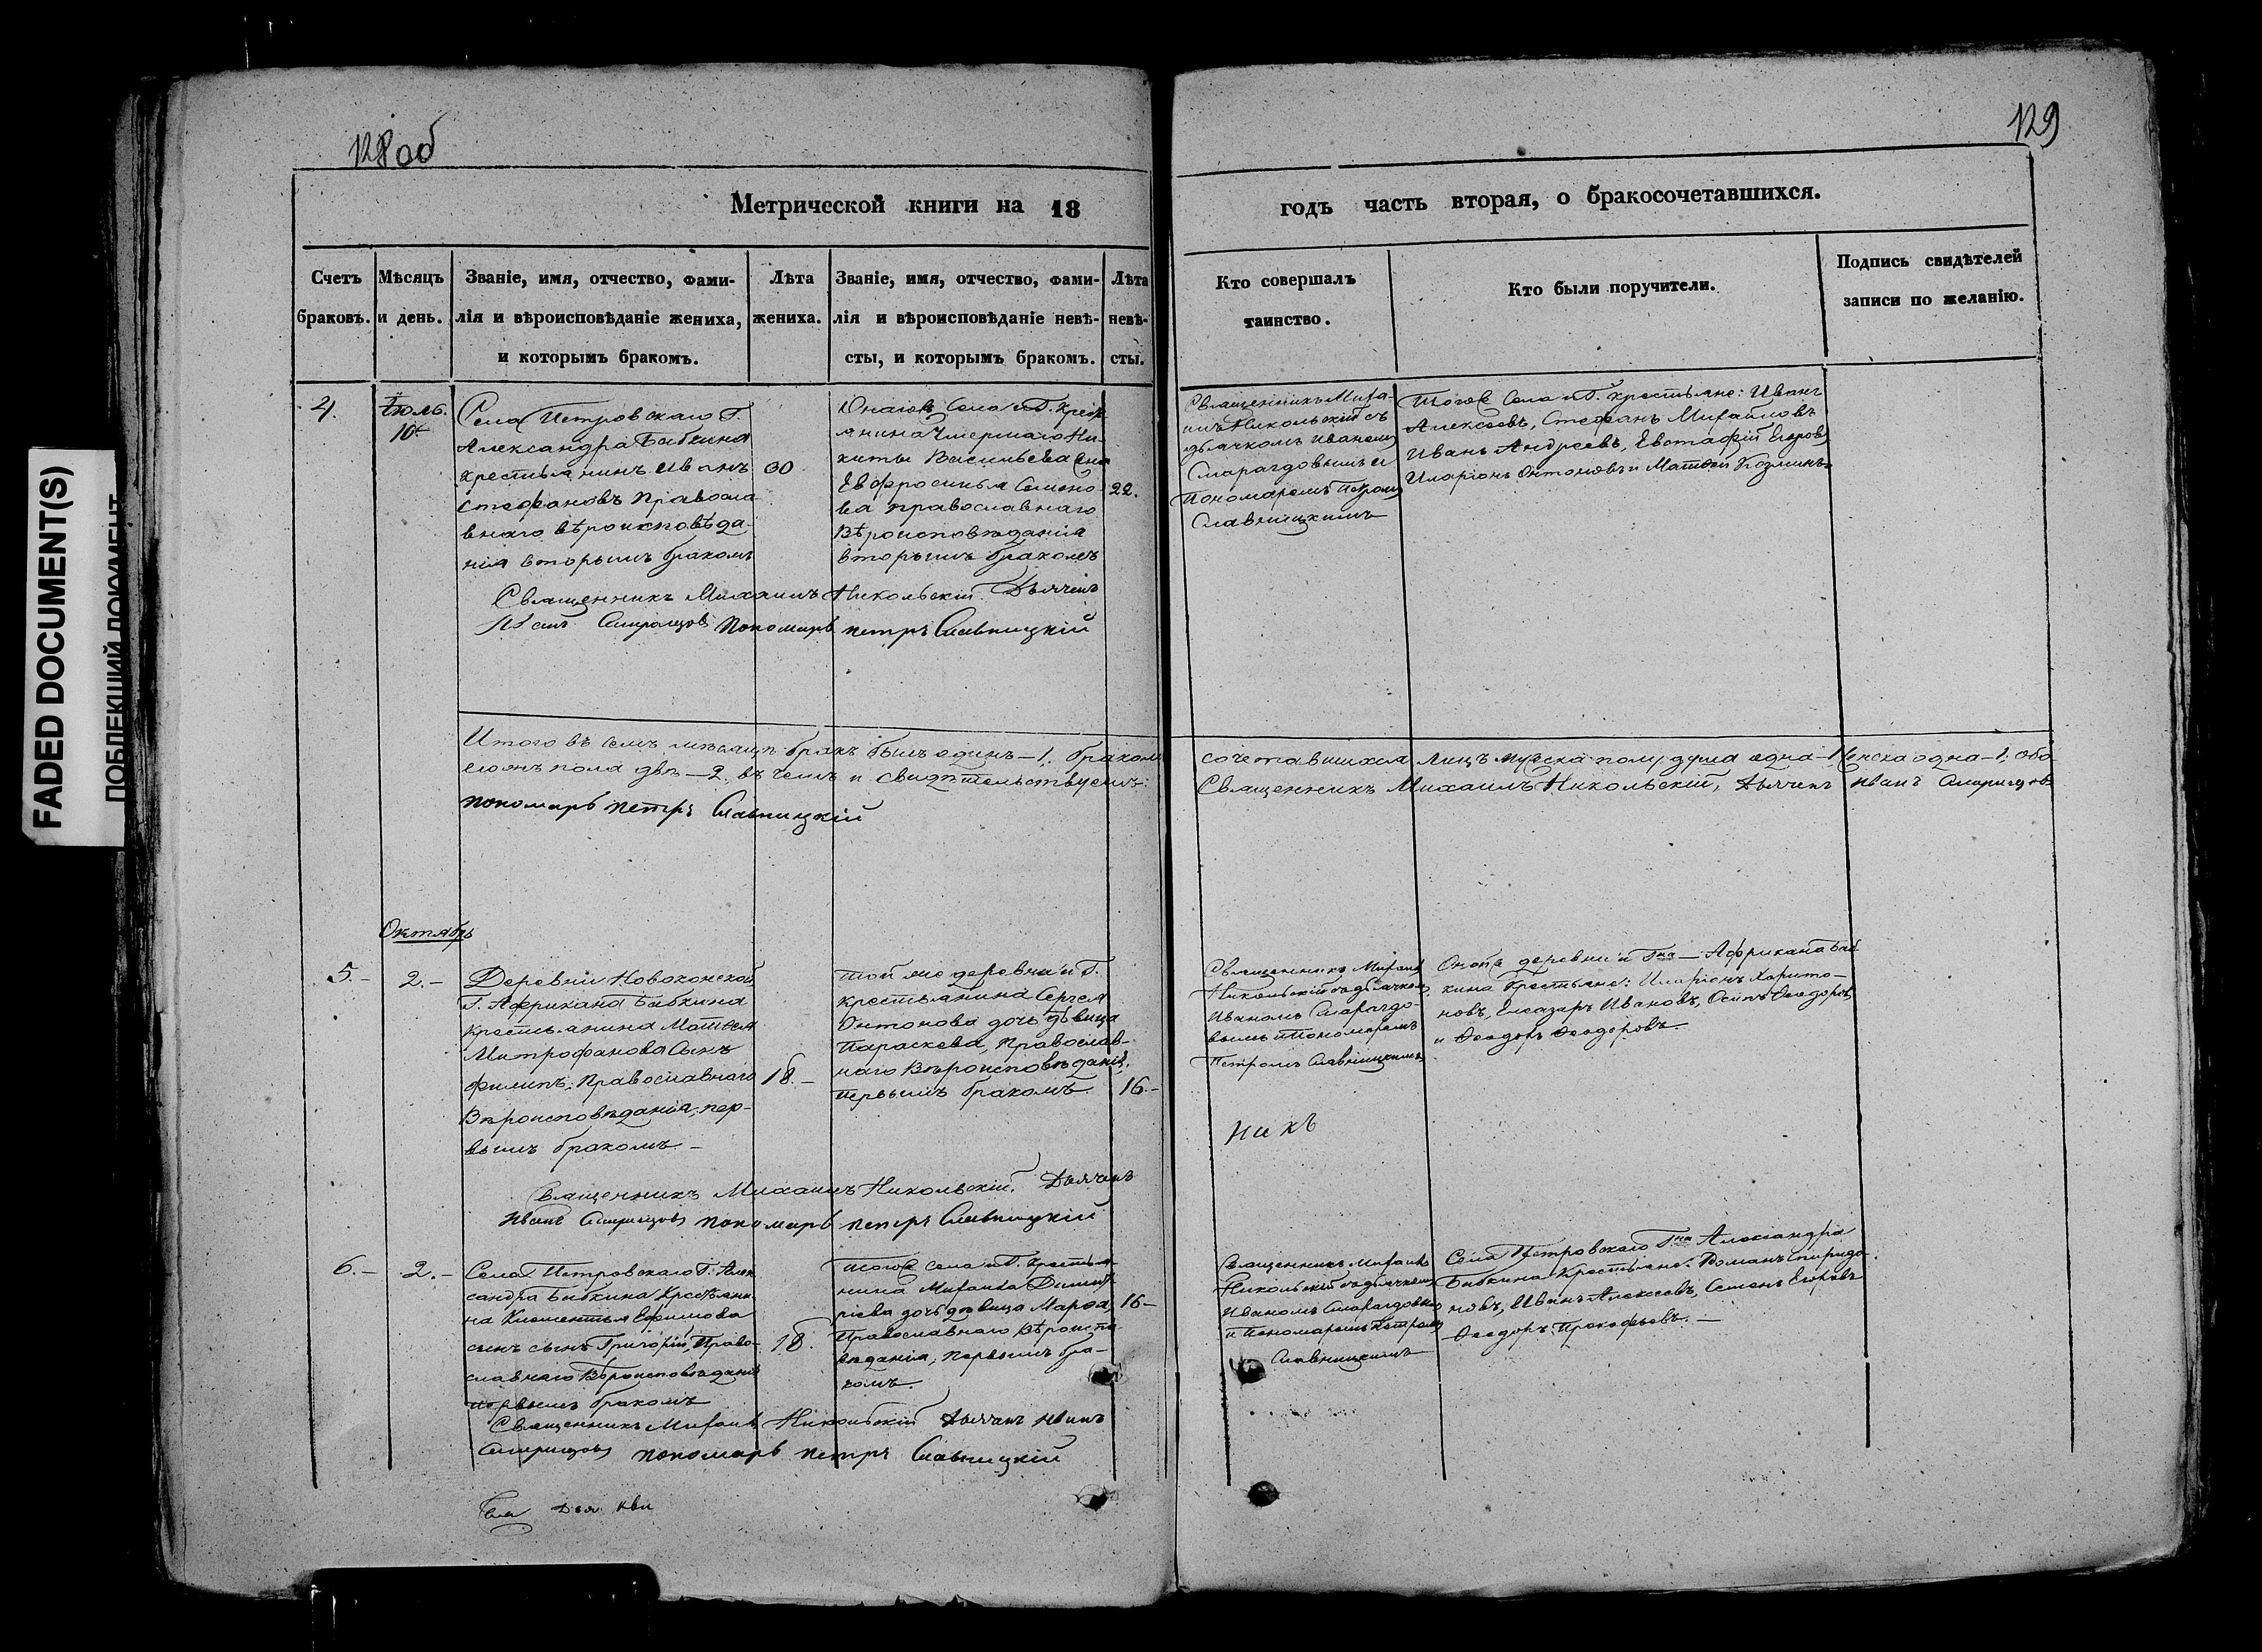 128 об
129
FADED DOCUMENT(S)
ПОБЛЕКШИЙ ДОКУМЕНТ
Метрической книги на 18
годъ часть вторая, о бракосочетавшихся.
Счетъ браковъ.
Мѣсяцъ и день.
Званіе, имя, отчество, фами-
лія и вѣроисповѣданіе жениха,
и которымъ бракомъ.
Лѣта жениха.
Званіе, имя, отчество, фами-
лія и вѣроисповѣданіе невѣ-
сты, и которымъ бракомъ.
Лѣта невѣ-
сты.
Кто совершалъ
таинство.
Кто были поручители.
Подпись свидѣтелей
записи по желанію.
4.
Іюль.
10
Села Петровскаго Г.
Александра Бибкина
крестьянинъ Иванъ
Стефановъ Правосла
внаго вѣроисповѣда-
нія вторымъ бракомъ
30
Села и Г. Крест
янина Умершаго Ни-
киты Васильева
Евфросинья Семено-
ва православнаго
Вѣроисповѣданія
вторымъ бракомъ
22.
Священникъ Миха-
илъ Никольскій съ
дьячкомъ Иваномъ
Смарагдовымъ и
Пономаремъ Петромъ
Славницкимъ
Тогоже Села и Г. крестьяне: Иванъ
Алексѣевъ, Стефанъ Михайловъ
Иванъ Андреевъ, Евстафій Егоровъ
Иларіонъ Антоновъ и Матвѣй Козминъ
Священникъ Михаилъ Никольскій. Дьячекъ
Иванъ Смарагдовъ Пономарь петръ Славницкій
Итого въ семъ мѣсяцѣ бракъ былъ одинъ - 1. бракомъ
сочетавшихся лицъ мужска полу душа одна - 1 женска одна - 1. обо
его жъ пола двѣ - 2. въ чемъ и свидѣтельствуемъ:
Священникъ Михаилъ Никольскій, Дьячекъ Иванъ Смарагдовъ
пономарь петръ Славницкій
Октябрь
5.-
2.-
Деревни Новоконской
Г. Африкана Бибкина
Крестьянина Матвея
Митрофанова Сынъ
Филипъ; Православнаго
Вѣроисповѣданія, пер-
вымъ бракомъ.-
18.-
Той же деревни и Г.
крестьянина Сергея
Антонова дочь дѣвица
Параскева, Православ-
наго Вѣроисповѣданія,
первымъ бракомъ.
16.-
Священникъ Михаилъ
Никольскій съ дьячкомъ
Иваномъ Смарагдо-
вымъ и Пономаремъ
Петромъ Славницкимъ
деревни и Гна Африкана Биб
кина Крестьяне: Иларіонъ Харито-
новъ, Елеазаръ Ивановъ, Осипъ Ѳеодоровъ
и Ѳеодоръ Ѳеодоровъ.
никъ
Священникъ Михаилъ Никольскій. Дьячекъ
Иванъ Смарагдовъ пономарь петръ Славницкій
6.-
2.-
Села Петровскаго Г. Алек
сандра Бибкина Крестьяни-
на Климентья Ефимова
сынъ сынъ Григорій, Право-
славнаго Вѣроисповѣданія
первымъ бракомъ
18.
тогоже села и Г. Крестья
нина Михаила Димит-
ріева дочь дѣвица Марфа,
Православнаго Вѣроиспо-
вѣданія, первымъ бра-
комъ.
16-
Священникъ Михаилъ
Никольскій съ дьячкомъ
Иваномъ Смарагдовымъ
и Пономаремъ Петромъ
Славницкимъ
Села Петровскаго Гна Александра
Бибкина Крестьяне: Романъ Спиридо-
новъ, Иванъ Алексѣевъ, Семенъ Егоровъ
Ѳеодоръ Прокофьевъ.-
Священникъ Михаилъ Никольскій Дьячекъ Иванъ
Смарагдовъ пономарь петръ Славницкій